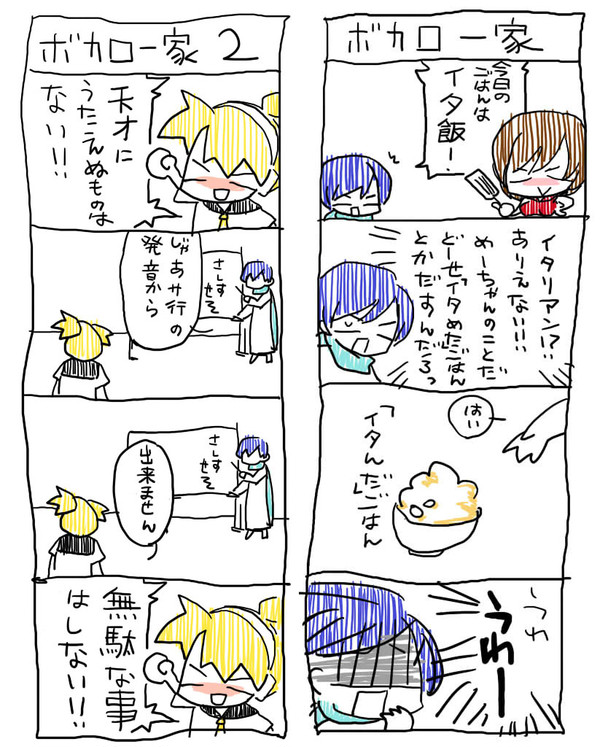 ボカロ一家
今日の
ごはんは
イタ飯ー!
イタリアン!?
ありえない!!!
めーちゃんのことだ
どーせ「イタめたごはん」
とかだすんだろっ
はい
「イタんだ」ごはん
うわ
うわー
ボカロ一家 2
天才に
うたえぬものは
ない!!
じゃあサ行の
発音から
さしす
せそ
出来ません
さしす
せそ
無駄な事
はしない!!